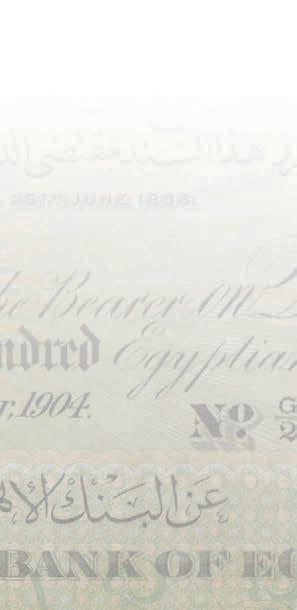 هذا السند بمقتضى
25TH JUNE 1898.
he Bearer on
ndred Egyptian
r, 1904. Nº
عن البنك الأه
BANK OF E